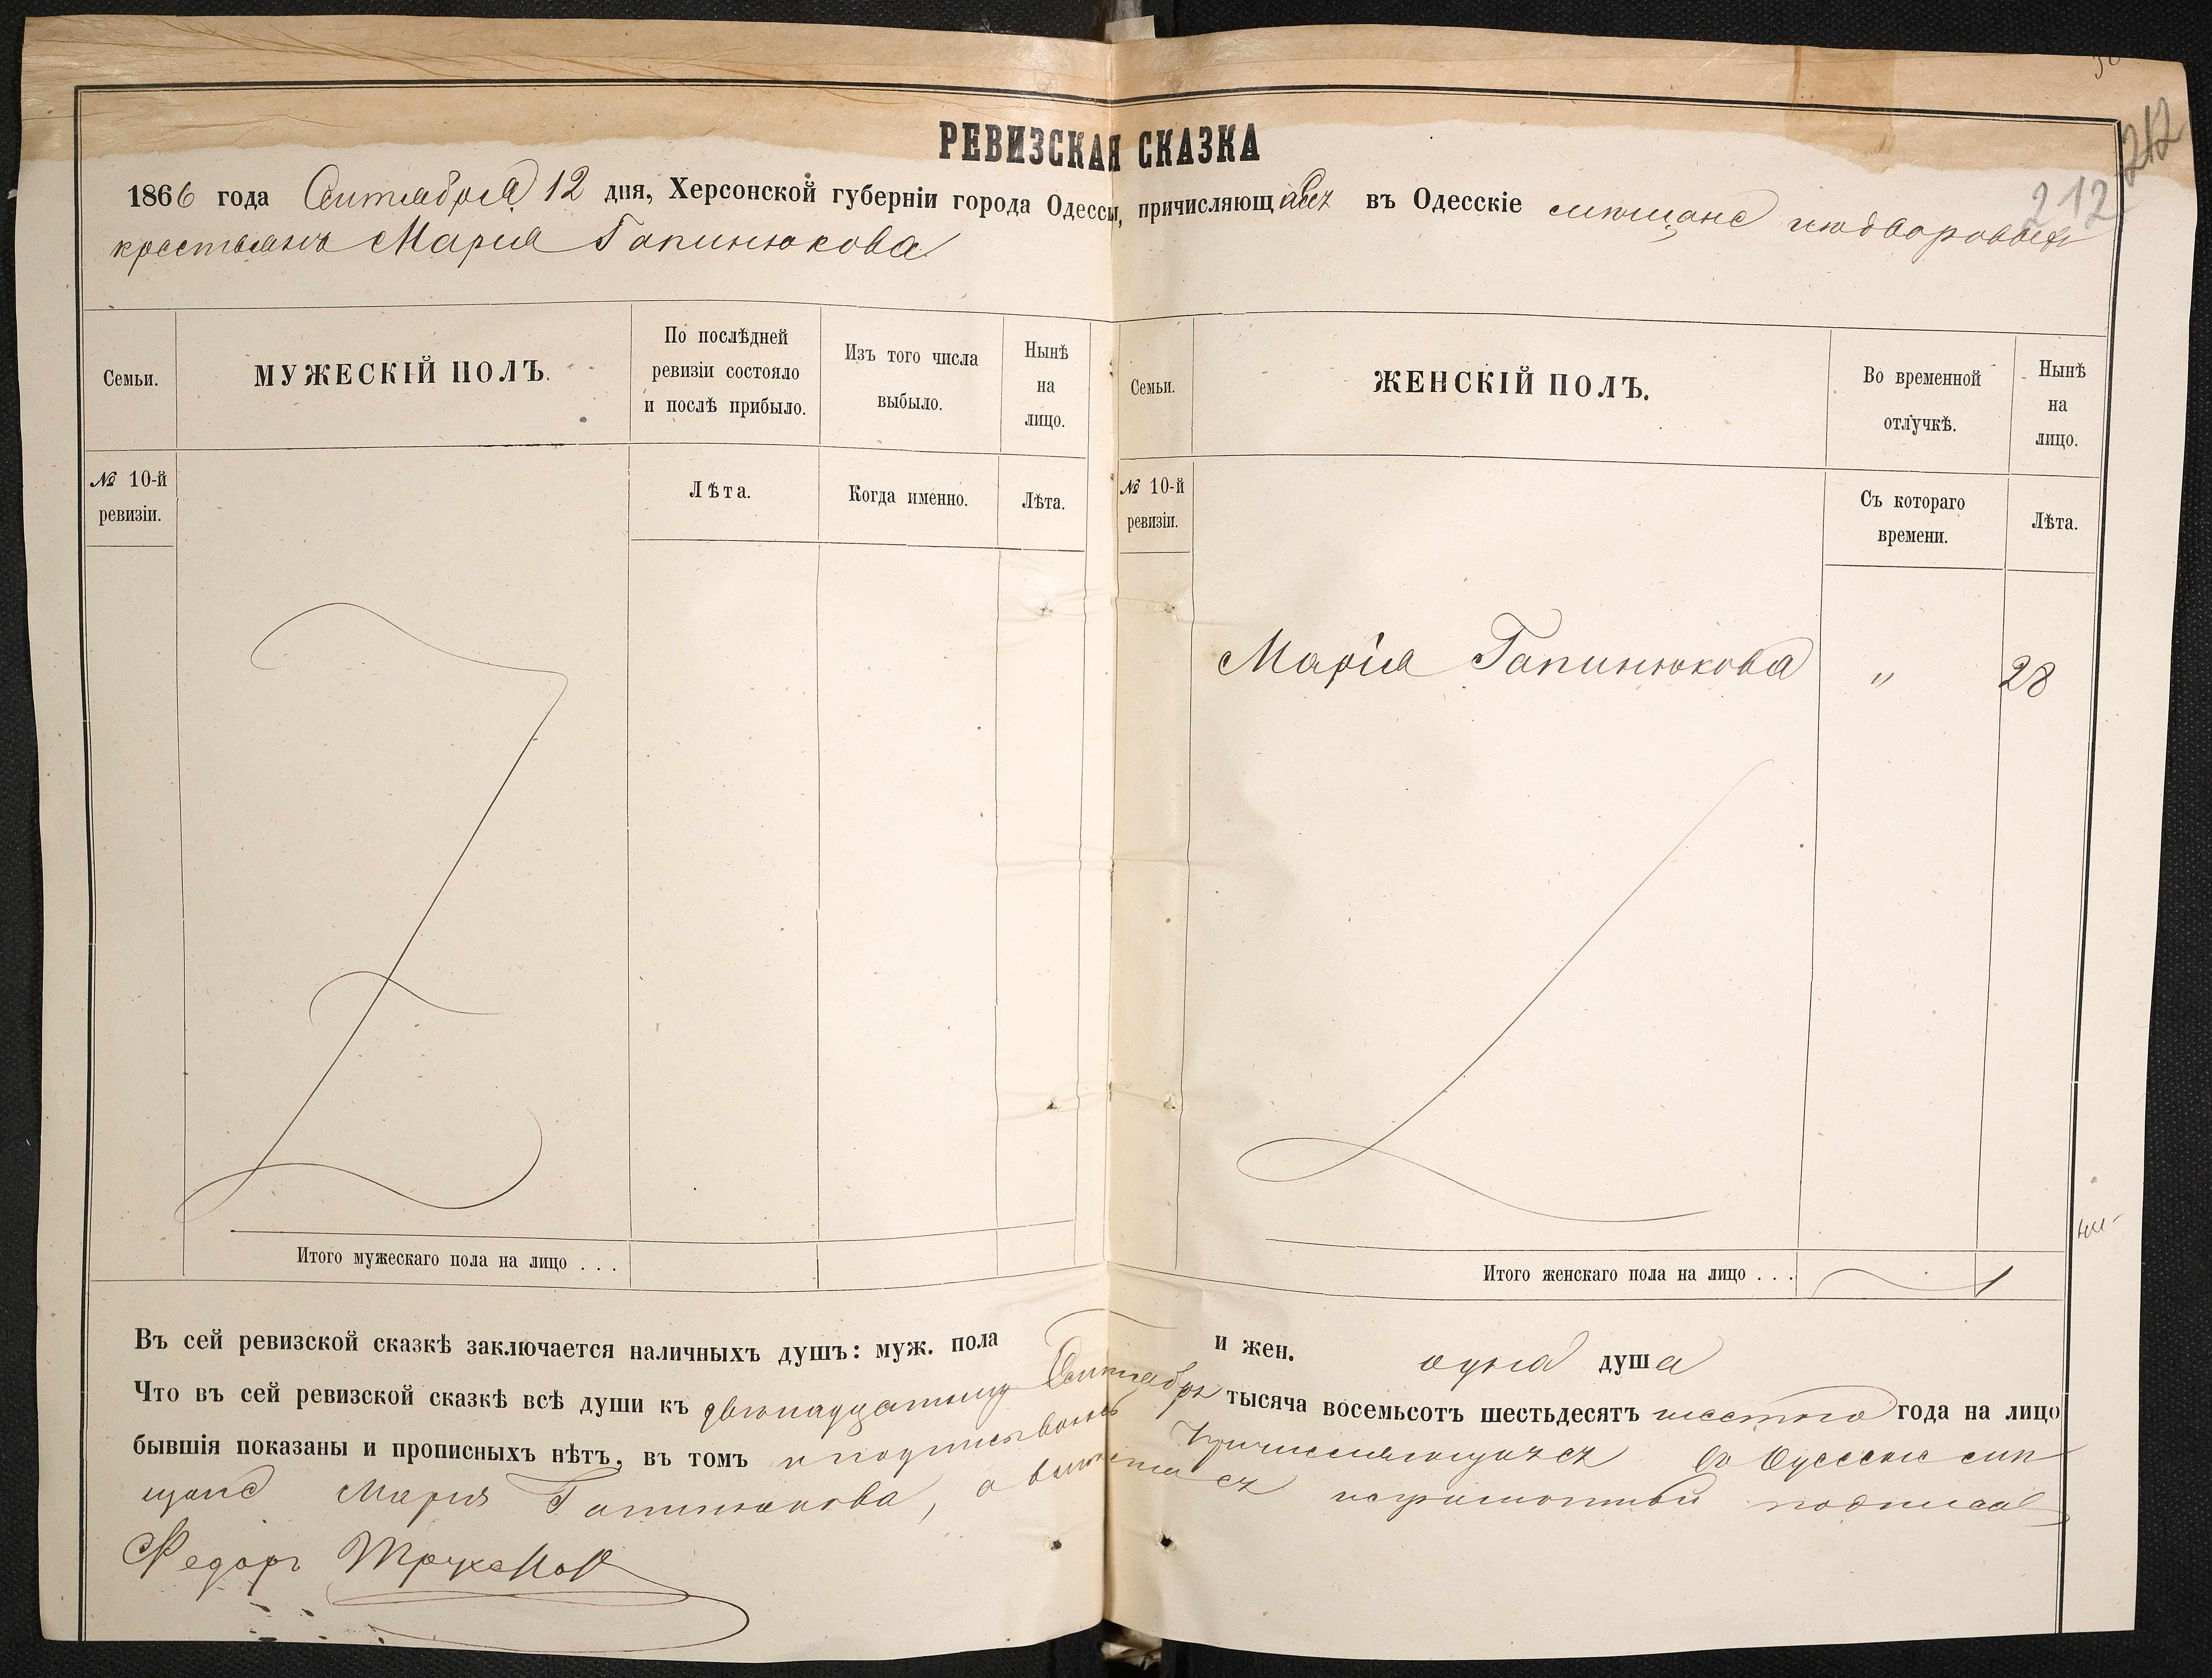 212
212
РЕВИЗСКАЯ СКАЗКА
1866 года Сентября 12 дня, Херсонской губерніи города Одессы, причисляющаяся въ Одесскіе мѣщане изъ дворовыхъ
крестьянъ Марія Гапинюкова
Семьи.
МУЖЕСКІЙ ПОЛЪ.
По послѣдней
ревизіи состояло
и послѣ прибыло.
Изъ того числа
выбыло.
Нынѣ
на
лицо.
Семьи.
ЖЕНСКІЙ ПОЛЪ.
Во временной
отлучкѣ.
Нынѣ
на
лицо.
№ 10-й
ревизіи.
Лѣта.
Когда именно.
Лѣта.
№ 10-й
ревизіи.
Съ котораго
времени.
Лѣта.
Марія Гапинюкова " 28
Итого мужескаго пола на лицо . . .
Итого женскаго пола на лицо . . . 1
Въ сей ревизской сказкѣ заключается наличныхъ душъ: муж. пола и жен. одна душа
Что въ сей ревизской сказкѣ всѣ души къ двѣнадцатому Сентября тысяча восемьсотъ шестьдесятъ шестого года на лицо
бывшія показаны и прописныхъ нѣтъ, въ томъ и подписываюсь Причисляющаяся въ Одесскіе мѣ
щане Марія Гапинюкова, а вмѣсто ея неграмотной подписалъ
Федоръ